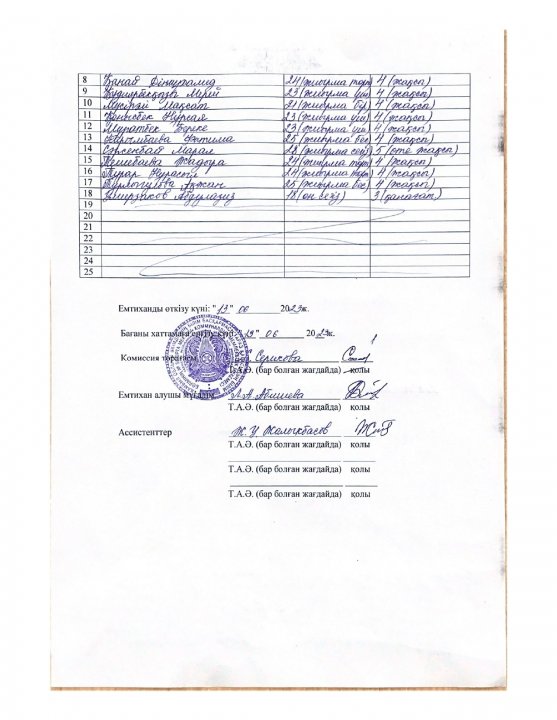 8 Қанай Дінмұхамед 24 (жиырма төрт) 4 (жақсы)
9 Мерей 23 (жиырма үш) 4 (жақсы)
10 Мақсат 21 (жиырма бір) 4 (жақсы)
11 Қонысбек Нұрай 23 (жиырма үш) 4 (жақсы)
12 Мұратбек Береке 23 (жиырма үш) 4 (жақсы)
13 Фатима 25 (жиырма бес) 4 (жақсы)
14 Сәкенбай Марал 28 (жиырма сегіз) 5 (өте жақсы)
15 24 (жиырма төрт) 4 (жақсы)
16 Тұрар 24 (жиырма төрт) 4 (жақсы)
17 Ақжан 25 (жиырма бес) 4 (жақсы)
18 Абдулазиз 18 (он сегіз) 3 (қанағат.)
19
20
21
22
23
24
25
Емтиханды өткізу күні: "13" 06 2023ж.
Бағаны хаттамаға енгізу күні: "13" 06 2023ж.
Комиссия төрағасы Серикова
Т.А.Ә. (бар болған жағдайда) қолы
Емтихан алушы мұғалім А.А.
Т.А.Ә. (бар болған жағдайда) қолы
Ассистенттер Ж.У.
Т.А.Ә. (бар болған жағдайда) қолы
Т.А.Ә. (бар болған жағдайда) қолы
Т.А.Ә. (бар болған жағдайда) қолы